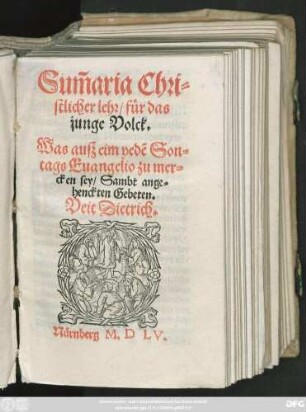 Sum̃aria Chri-
stlicher lehr/ für das
junge Volck.
Was auß eim yedẽ Son-
tags Euangelio zu mer-
cken sey/ Sambt ange-
henckten Gebeten.
Veit Dietrich.
Nürnberg M. D LV.
DFG